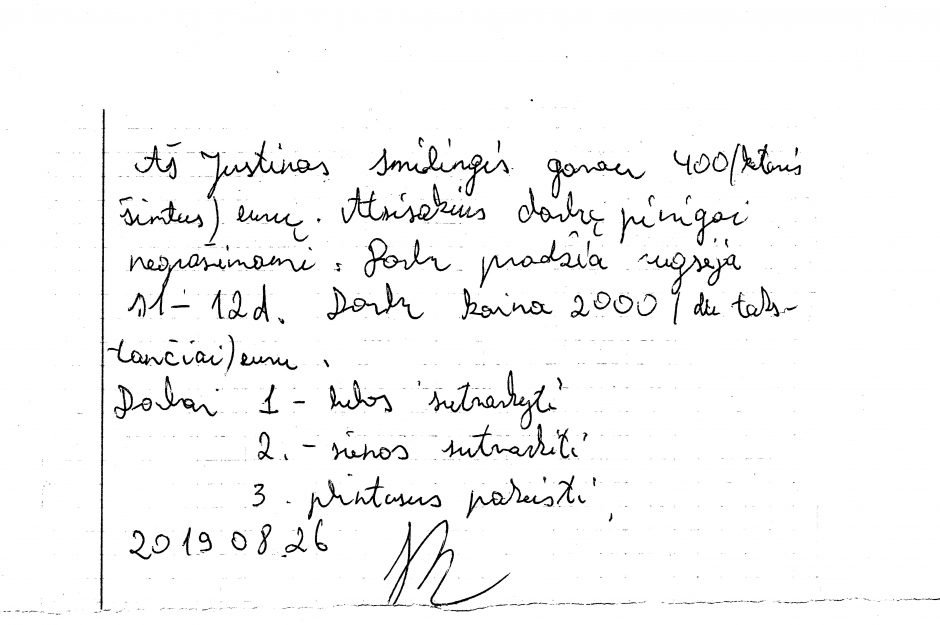 Aš Justinas Smilingis gavau 400 (keturis
šimtus) eurų. Atsisakius darbų pinigai
negrąšinami. Darbų pradžia rugsėjà
11-12d. Darbų kaina 2000 (du tūks-
tančiai) eurų.
Darbai 1 - lubos sutvarkyti
2. - sienos sutvarkiti
3. plintusus pakeisti,
2019 08.26